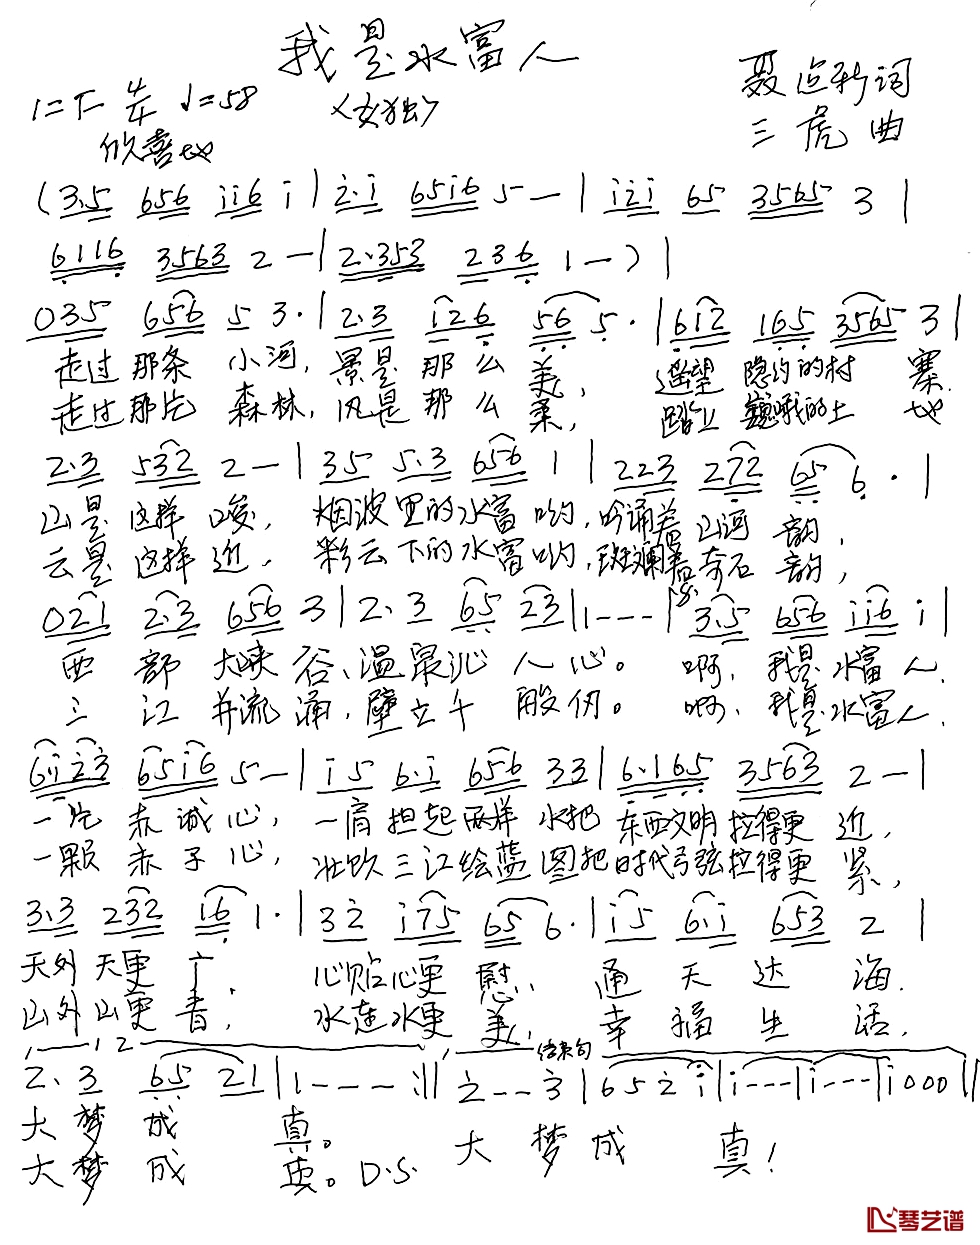 我是水富人
〈女独〉
1=F 4/4 ♩=58
欣喜地
聂运新词
三虎曲
(3.5 656 ii6 i | 2.i 65i6 5 — | i2i 65 3565 3 |
6116 3563 2 — | 2.353 236 1 — ) |
035 656 5 3. | 2.3 126 56 5. | 612 165 3565 3 |
走过那条 小河, 景是那么美, 遥望 隐约的村 寨.
走过那片 森林, 风是那么柔, 踏上 巍峨的土 地
2.3 532 2 — | 35 5.3 656 1 | 223 272 65 6. |
山是 这样 峻, 烟波里的水富哟, 吟诵着山河 韵,
云是 这样 近, 彩云下的水富哟, 斑斓着奇石 韵,
021 2.3 656 3 | 2. 3 65 23 | 1 - - - | 3.5 656 ii6 i |
西 部 大峡 谷、温泉沁人心。 啊, 我是水富人.
三 江 并流 涌, 壁立千般仞。 啊, 我是水富人.
6.i 23 65i6 5 — | i5 6.i 656 33 | 6.165 3563 2 — |
一片 赤诚心, 一肩担起两样 水把 东西文明拉得更 近,
一颗 赤子心, 壮饮三江绘蓝图把时代弓弦拉得更 紧,
3.3 232 16 1. | 32 i75 65 6. | i5 6.i 653 2 |
天外 天更 广, 心贴心更 慰, 通 天 达 海.
山外 山更 青, 水连水更 美, 幸 福 生 活.
1, 2 结束句
2. 3 65 21 | 1 - - - :|| 2 - - 3 | 6 5 2 i | i - - - | i - - - | i 0 0 0 ||
大梦成 真。 大 梦 成 真!
大梦成 真。D.S.
琴艺谱